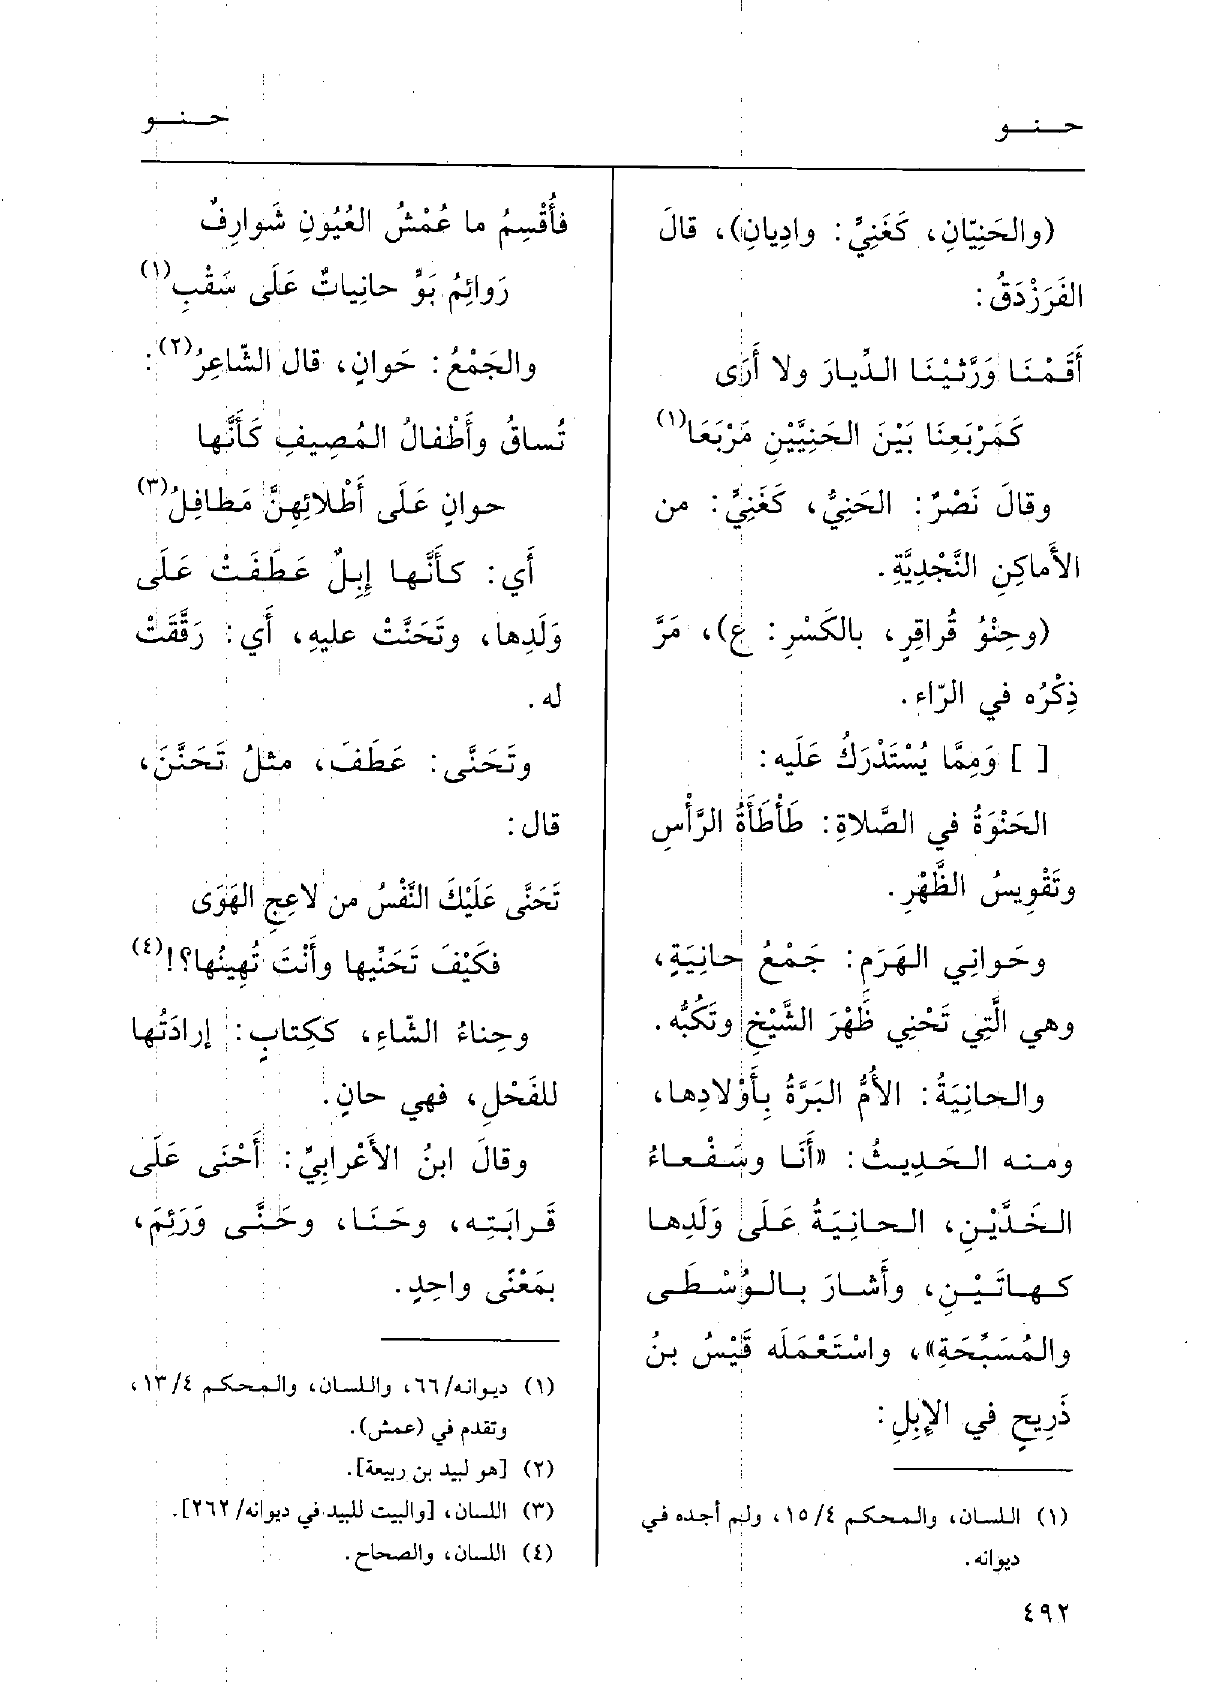 حـنـو
حـنـو
(والحَنِيّانِ، كَغَنِيٍّ: وادِيانِ)، قالَ
الفَرَزْدَقُ:
أَقَمْـنَـا وَرَثَّيْـنَـا الـدِّيـارَ ولا أَرَى
كَمَرْبَعِنَا بَيْنَ الحَنِيَّيْنِ مَرْبَعَا(١)
وقالَ نَصْرٌ: الحَنِيُّ، كَغَنِيٍّ: من
الأَماكِنِ النَّجْدِيَّةِ.
(وحِنْوُ قُراقِرٍ، بالكَسْرِ: ع)، مَرَّ
ذِكْرُه في الرّاء.
[ ] وَمِمَّا يُسْتَدْرَكُ عَلَيه:
الحَنْوَةُ في الصَّلاةِ: طَأْطَأَةُ الرَّأْسِ
وتَقْوِيسُ الظَّهْرِ.
وحَوانِي الهَرَمِ: جَمْعُ حانِيَةٍ،
وهي الَّتِي تَحْنِي ظَهْرَ الشَّيْخِ وتَكُبُّه.
والحانِيَةُ: الأُمُّ البَرَّةُ بِأَوْلادِها،
ومـنـه الـحَـدِيـثُ: «أَنَـا وسَـفْـعـاءُ
الـخَـدَّيْـنِ، الـحـانِـيَـةُ عَـلَـى وَلَدِهـا
كـهـاتَـيْـنِ، وأَشـارَ بـالـوُسْـطَـى
والمُسَبِّحَةِ»، واسْتَعْمَلَه قَيْسُ بنُ
ذَرِيحٍ في الإِبِلِ:
(١) اللسان، والمحكم ١٥/٤، ولم أجده في
ديوانه.
٤٩٢
فأُقْسِمُ ما عُمْشُ العُيُونِ شَوارِفٌ
رَوائِمُ بَوٍّ حانِياتٌ عَلَى سَقْبِ(١)
والجَمْعُ: حَوانٍ، قال الشّاعِرُ(٢):
تُساقُ وأَطْفالُ المُصِيفِ كَأَنَّها
حوانٍ عَلَى أَطْلائِهِنَّ مَطافِلُ(٣)
أَي: كـأَنَّـهـا إِبِـلٌ عَـطَـفَـتْ عَـلَـى
وَلَدِها، وتَحَنَّتْ عليهِ، أَي: رَقَّقَتْ
له.
وتَحَنَّى: عَطَفَ، مثلُ تَحَنَّنَ،
قال:
تَحَنَّى عَلَيْكَ النَّفْسُ من لاعِجِ الهَوَى
فكَيْفَ تَحَنِّيها وأَنْتَ تُهِينُها؟!(٤)
وحِناءُ الشّاءِ، ككِتابٍ: إرادَتُها
للفَحْلِ، فهي حانٍ.
وقالَ ابنُ الأَعْرابِيِّ: أَحْنَى عَلَى
قَـرابَتِـه، وحَـنَـا، وحَـنَّـى ورَئِمَ،
بمَعْنًى واحِدٍ.
(١) ديوانه/٦٦، واللسان، والمحكم ١٣/٤،
وتقدم في (عمش).
(٢) [هو لبيد بن ربيعة].
(٣) اللسان، [والبيت للبيد في ديوانه/٢٦٢].
(٤) اللسان، والصحاح.